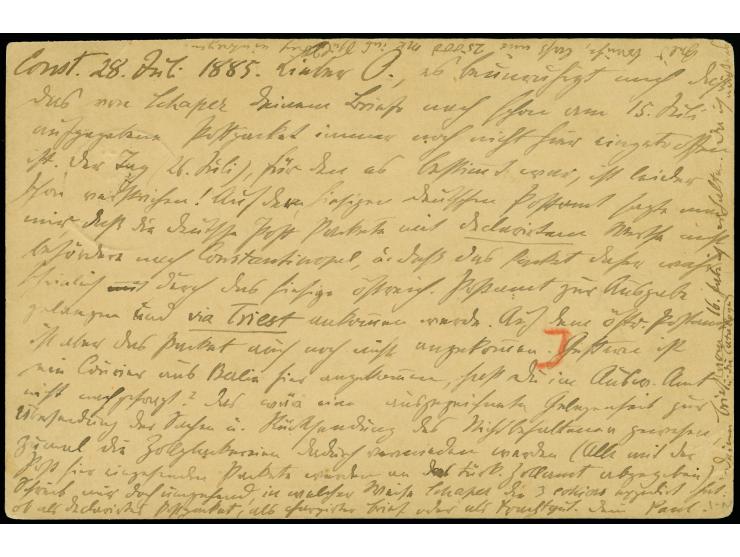 Const. 28. Juli 1885. Lieber O., es beunruhigt mich daß
das von Schaper Deinem Briefe nach schon am 15. Juli
aufgegebene Postpacket immer noch nicht hier eingetroffen
ist. Der Tag (26. Juli), für den es bestimmt war, ist leider
schon verstrichen! Auf dem hiesigen deutschen Postamt sagte man
mir daß die deutsche Post Packete mit declarirtem Werthe nicht
befördere nach Constantinopel, u. daß das Packet daher wahr-
scheinlich durch das hiesige östreich. Postamt zur Ausgabe
gelangen und via Triest ankommen werde. Auf dem östr. Postamt
ist aber das Packet auch noch nicht angekommen. Gestern ist
ein Courier aus Berlin hier angekommen, hast Du im Ausw. Amt
nicht nachgefragt? Das wäre eine ausgezeichnete Gelegenheit zur
Übersendung der Sachen u. Rücksendung des Nichtbehaltenen gewesen
zumal die Zollplackereien dadurch vermieden werden (Alle mit der
Post hier eingehenden Packete werden an das türk. Zollamt abgegeben)
Schreib mir doch umgehend, in welcher Weise Schaper die 3 expedirt hat
ob als declarirtes Postpacket, als chargirter Brief oder als Frachtgut. Dein Paul.